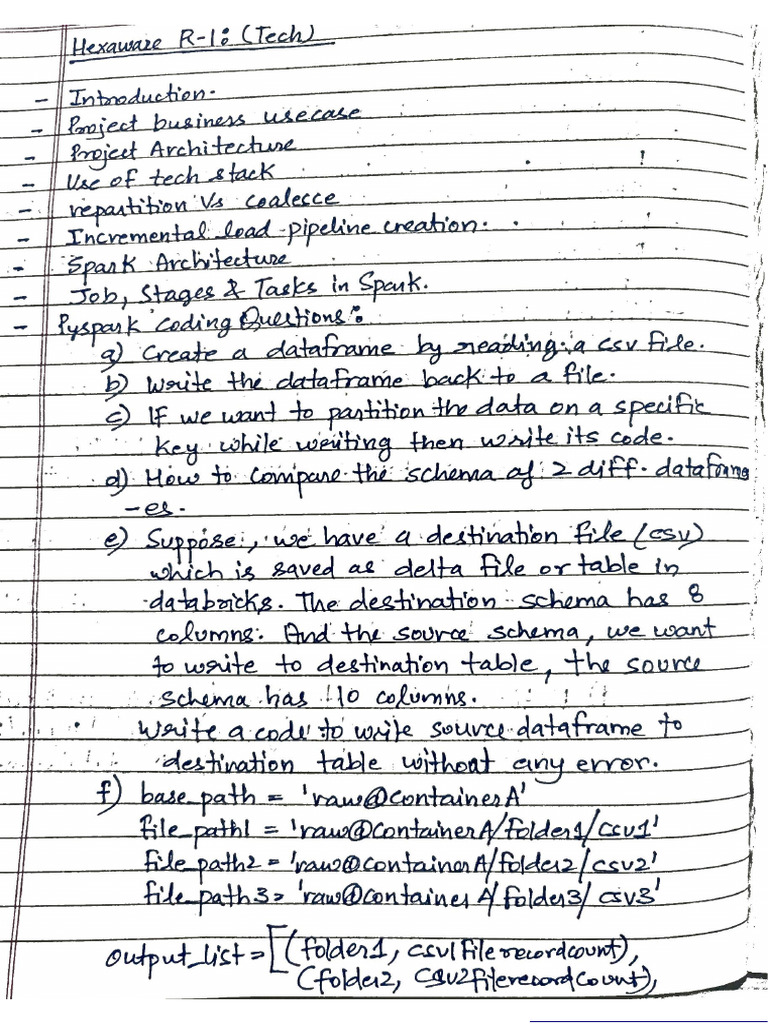 Hexaware R-1: (Tech)
- Introduction.
- Project business usecase
- Project Architecture
- Use of tech stack
- repartition Vs coalesce
- Incremental load pipeline creation.
- Spark Architecture
- Job, Stages & Tasks in Spark.
- Pyspark Coding Questions:
a) Create a dataframe by reading a csv file.
b) Write the dataframe back to a file.
c) If we want to partition the data on a specific
key while writing then write its code.
d) How to compare the schema of 2 diff. datafram
-es.
e) Suppose, we have a destination file (csv)
which is saved as delta file or table in
databricks. The destination schema has 8
columns. And the source schema, we want
to write to destination table, the source
schema has 10 columns.
Write a code to write source dataframe to
destination table without any error.
f) base_path = 'raw@containerA'
file_path1 = 'raw@containerA/folder1/csv1'
file_path2 = 'raw@containerA/folder2/csv2'
file_path3 = 'raw@containerA/folder3/csv3'
output_list = [(folder1, csv1filerecordcount),
(folder2, csv2filerecordcount),